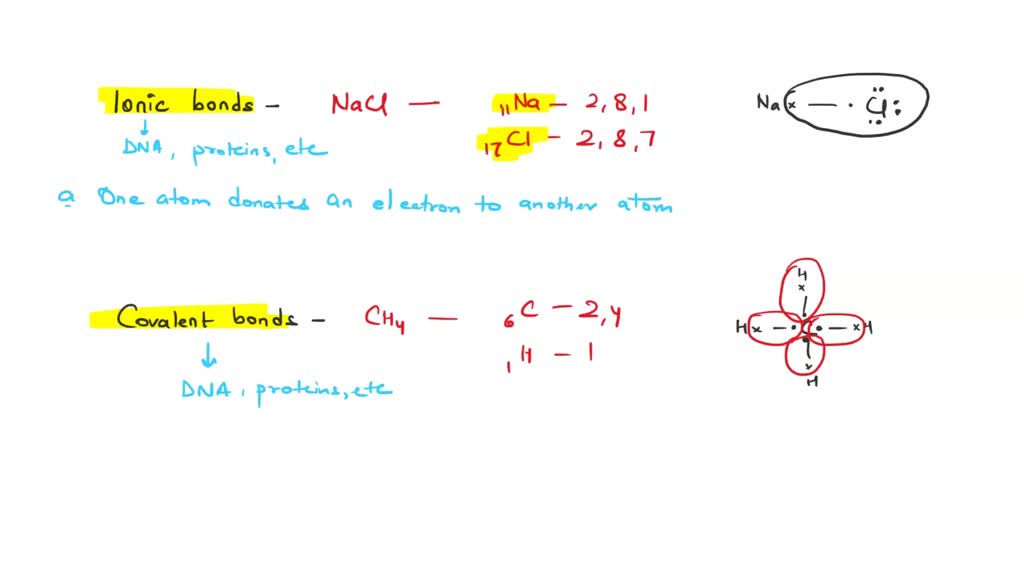 Ionic bonds – NaCl — ₁₁Na – 2, 8, 1 Na x — · Cl
DNA, proteins, etc ₁₇Cl – 2, 8, 7
a One atom donates an electron to another atom
H
x
Covalent bonds – CH₄ — ₆C – 2, 4 H x – · C · – x H
₁H – 1 x
H
DNA, proteins, etc